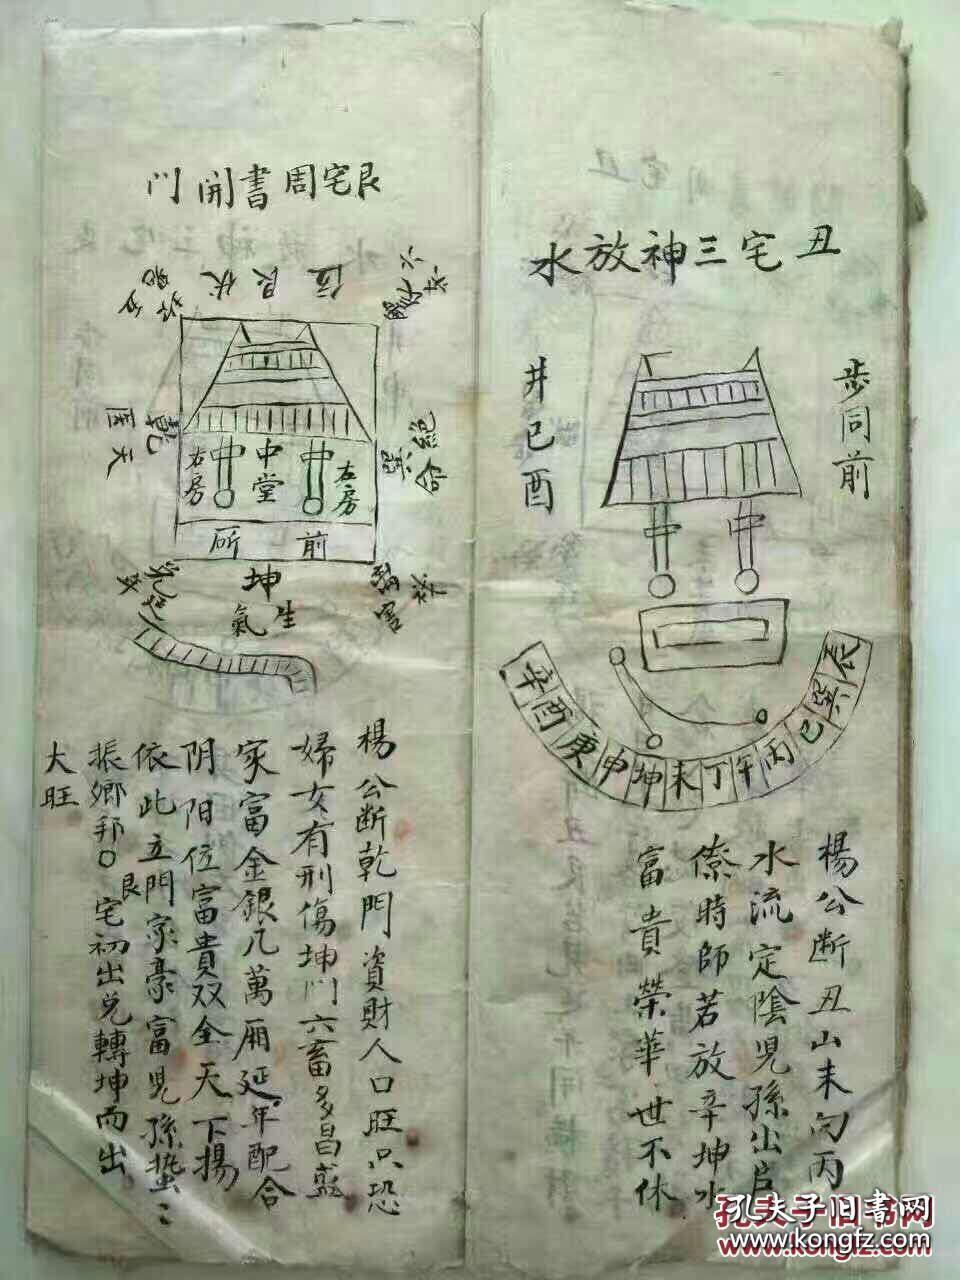 丑宅三神放水
步同前
井已酉
辛酉庚申坤未丁午丙巳巽
楊公断丑山未向丙
水流定陰児孫出官
僚時師若放辛坤水
富貴榮華世不休
艮宅周書開門
位艮伏
六
絶命
巽
五
乾
天医
中堂
左房
右房
前所
坤
生氣
禍害
兌延年
楊公断乾門資財人口旺只恐
婦女有刑傷坤门六畜多昌盛
家富金銀几萬廂延年配合
阴阳位富貴双全天下揚
依此立門家豪富児孫蟄〻
振鄉邦〇艮宅初出兌轉坤而出
大旺
孔夫子旧书网
www.kongfz.com